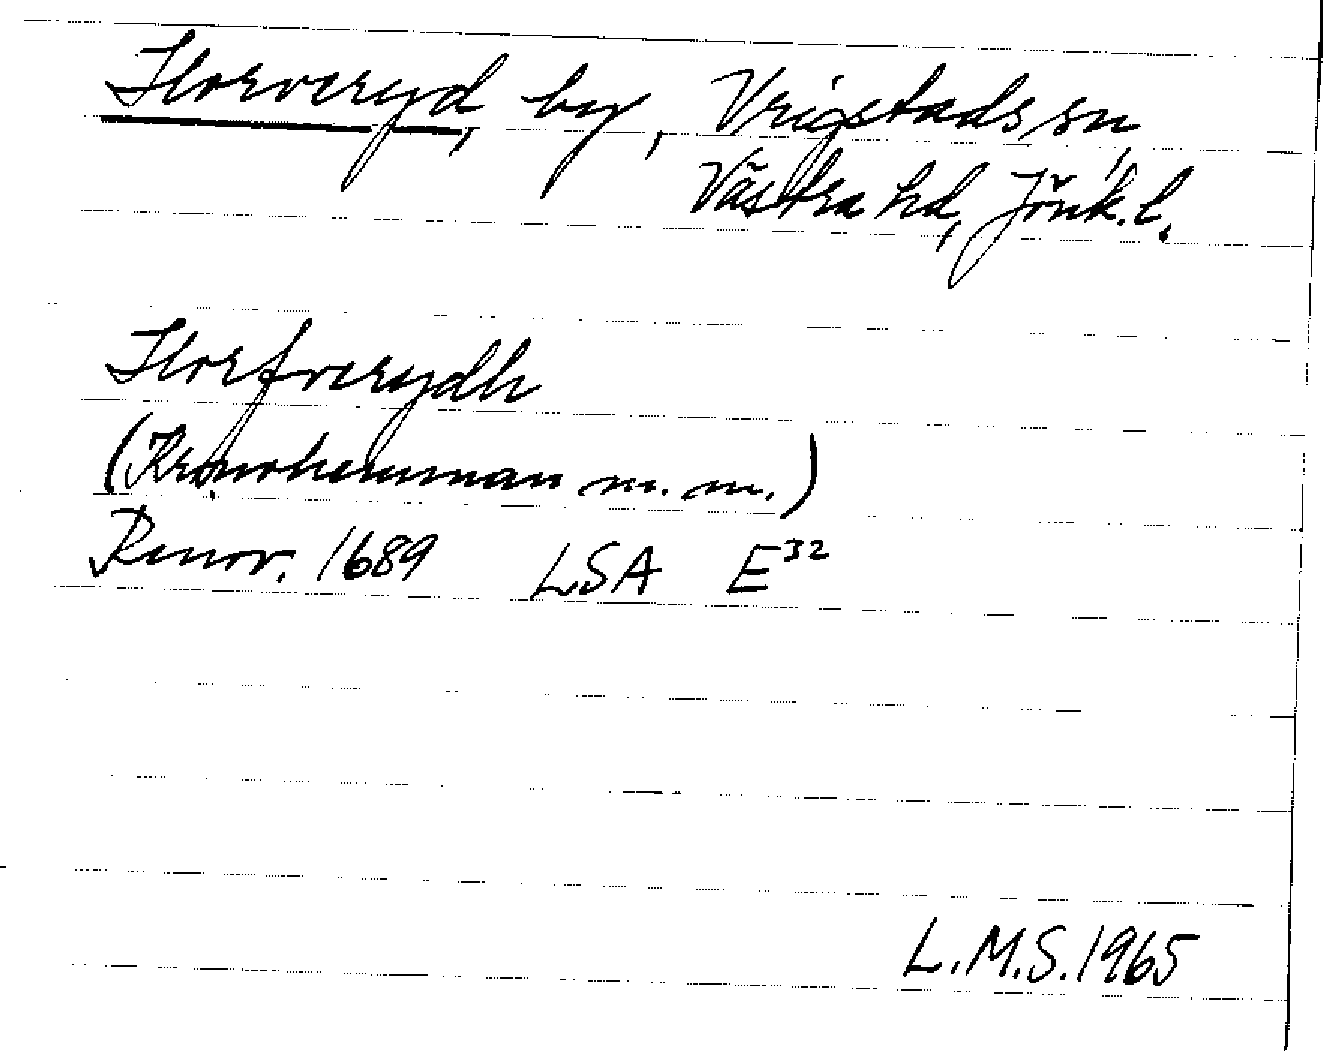 Horveryd, by, Vrigstads sn,
Västra hd, Jönk. l.
Horfverydh
(Kronohemman m. m.)
Renov. 1689 LSA E³²
L.M.S. 1965